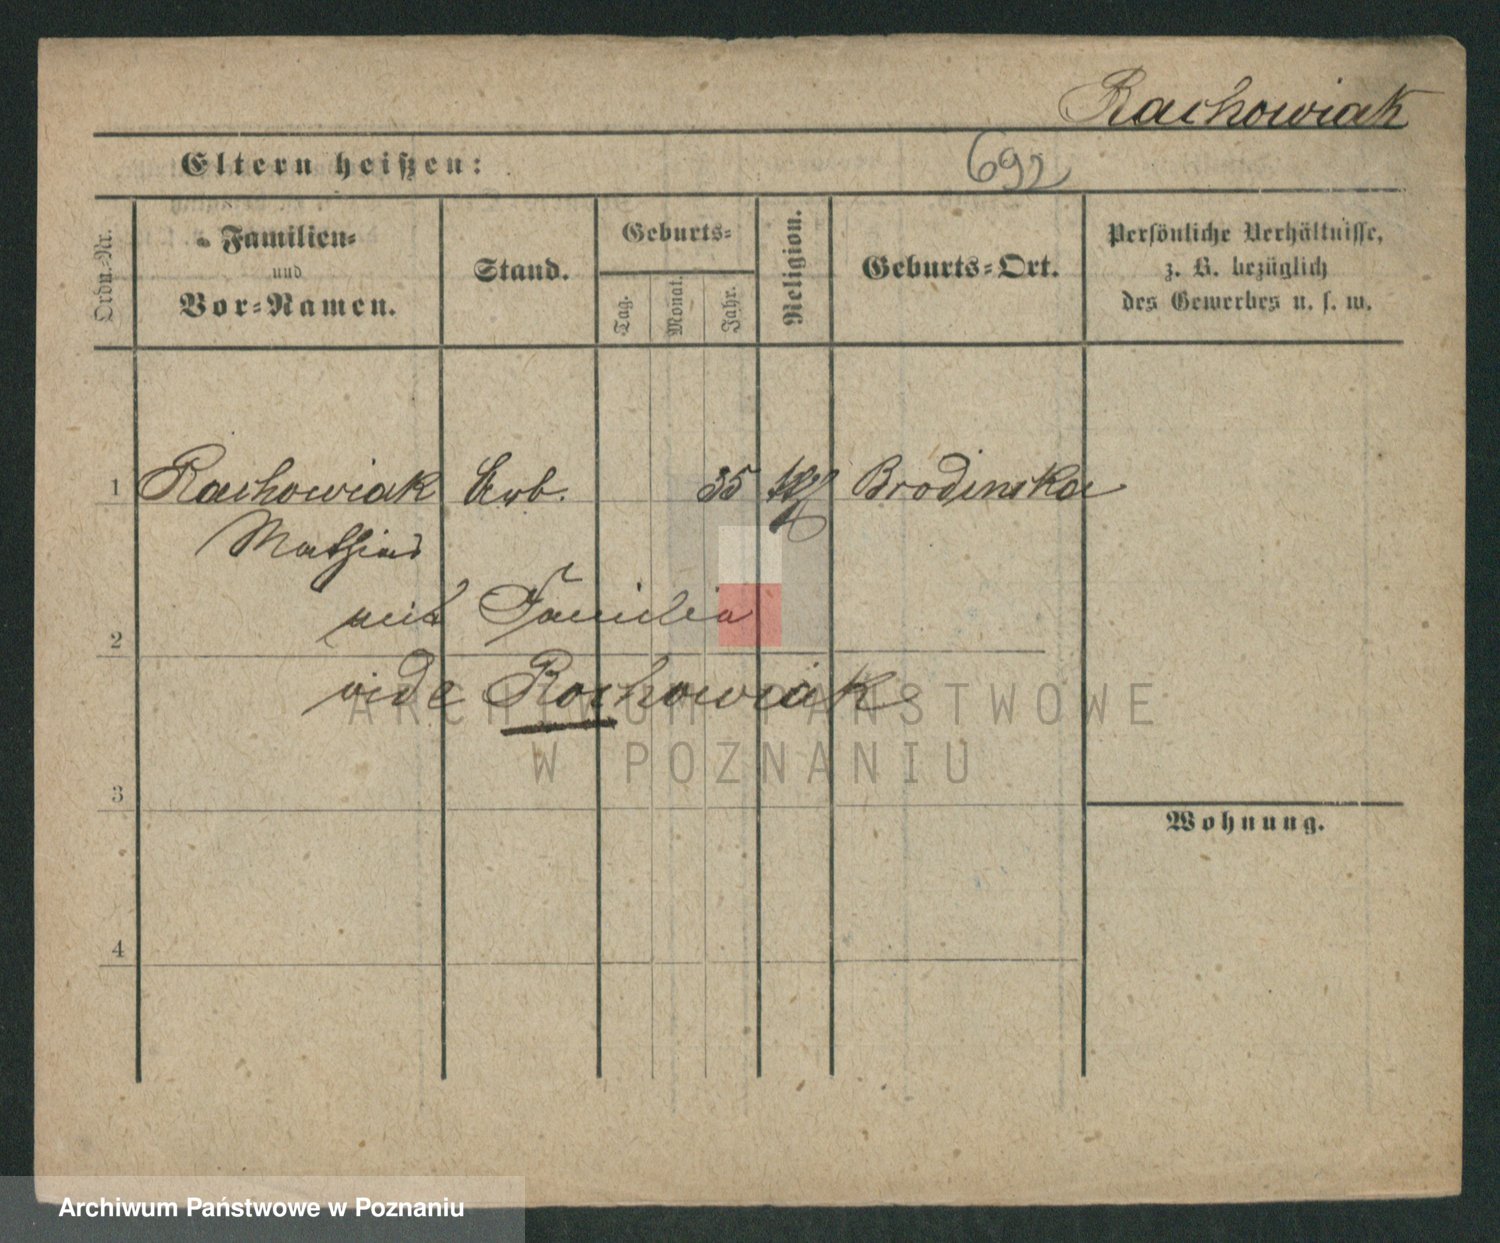 Rachowiak
Eltern heißen:
692
Ordn.-Nr.
Familien-
und
Vor-Namen.
Stand.
Geburts-
Tag.
Monat.
Jahr.
Religion.
Geburts-Ort.
Persönliche Verhältnisse,
z. B. bezüglich
des Gewerbes u. s. w.
1 Rachowiak Arb. 35 Brodinskae
Mathias
mit Familie
2
vide Rochowiak
ARCHIWUM PAŃSTWOWE
W POZNANIU
3
Wohnung.
4
Archiwum Państwowe w Poznaniu